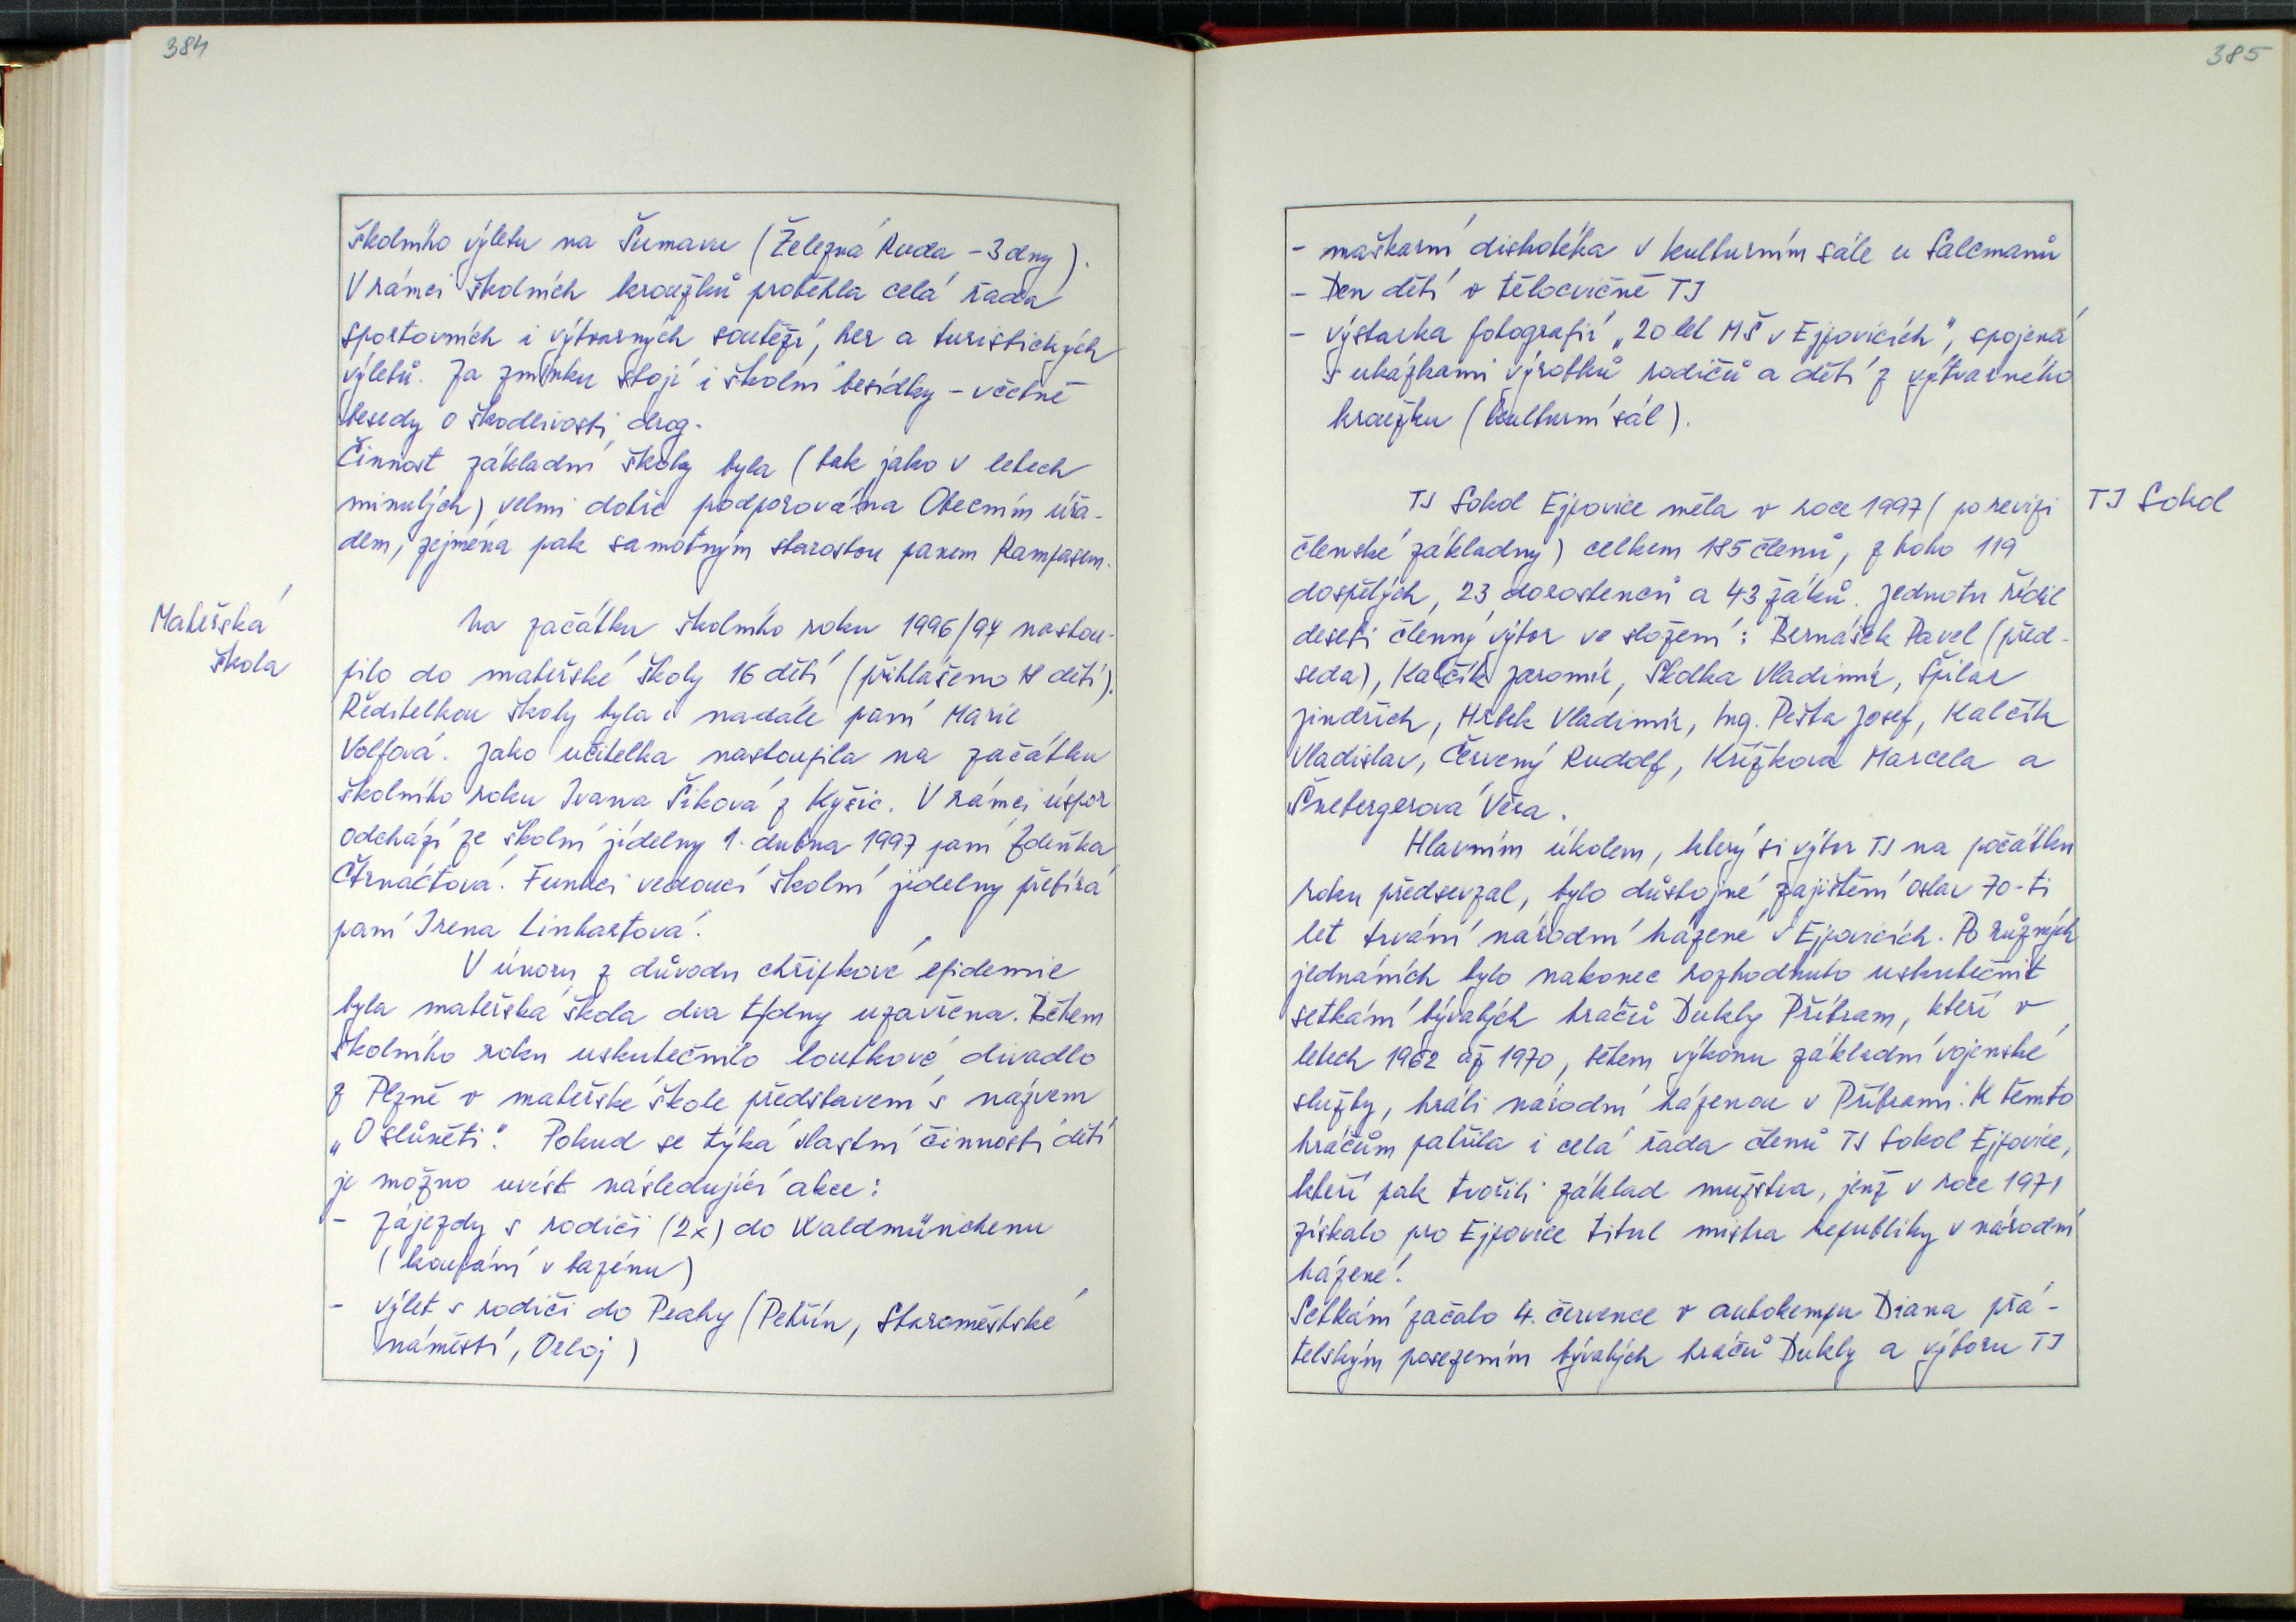 384
školního výletu na Šumavu (Železná Ruda - 3 dny).
V rámci školních kroužků proběhla celá řada
sportovních i výtvarných soutěží, her a turistických
výletů. Za zmínku stojí i školní besídky - včetně
besedy o škodlivosti drog.
Činnost základní školy byla (tak jako v letech
minulých) velmi dobře podporována Obecním úřa-
dem, zejména pak samotným starostou panem Rampasem.
Mateřská
škola
Na začátku školního roku 1996/97 nastou-
pilo do mateřské školy 16 dětí (přihlášeno dětí).
Ředitelkou školy byla i nadále paní Marie
Volfová. Jako učitelka nastoupila na začátku
školního roku Ivana Šiková z Kyšic. V rámci úspor
odchází ze školní jídelny 1. dubna 1997 paní Zdeňka
Čtrnáctová. Funkci vedoucí školní jídelny přebírá
paní Irena Linhartová.
V únoru z důvodu chřipkové epidemie
byla mateřská škola dva týdny uzavřena. Během
školního roku uskutečnilo loutkové divadlo
z Plzně v mateřské škole představení s názvem
„O sluněti". Pokud se týká vlastní činnosti dětí
je možno uvést následující akce:
- zájezdy s rodiči (2x) do Waldmünchenu
(koupání v bazénu)
- výlet s rodiči do Prahy (Petřín, Staroměstské
náměstí, Orloj)
385
- maškarní diskotéka v kulturním sále u Salcmanů
- Den dětí v tělocvičně TJ
- výstavka fotografií „20 let MŠ v Ejpovicích", spojená
s ukázkami výrobků rodičů a dětí z výtvarného
kroužku (kulturní sál).
TJ Sokol
TJ Sokol Ejpovice měla v roce 1997 (po revizi
členské základny) celkem 185 členů, z toho 119
dospělých, 23 dorostenců a 43 žáků. Jednotu řídil
deseti členný výbor ve složení: Bernášek Pavel (před-
seda), Kalčík Jaromír, Skolka Vladimír, Špilar
Jindřich, Hrbek Vladimír, Ing. Pešta Josef, Kalčík
Vladislav, Červený Rudolf, Křížková Marcela a
Šnebergerová Věra.
Hlavním úkolem, který si výbor TJ na počátku
roku předsevzal, bylo důstojné zajištění oslav 70-ti
let trvání národní házené v Ejpovicích. Po různých
jednáních bylo nakonec rozhodnuto uskutečnit
setkání bývalých hráčů Dukly Příbram, kteří v
letech 1962 až 1970, během výkonu základní vojenské
služby, hráli národní házenou v Příbrami. K těmto
hráčům patřila i celá řada členů TJ Sokol Ejpovice,
kteří pak tvořili základ mužstva, jenž v roce 1971
získalo pro Ejpovice titul mistra republiky v národní
házené.
Setkání začalo 4. července v autokempu Diana přá-
telským posezením bývalých hráčů Dukly a výboru TJ